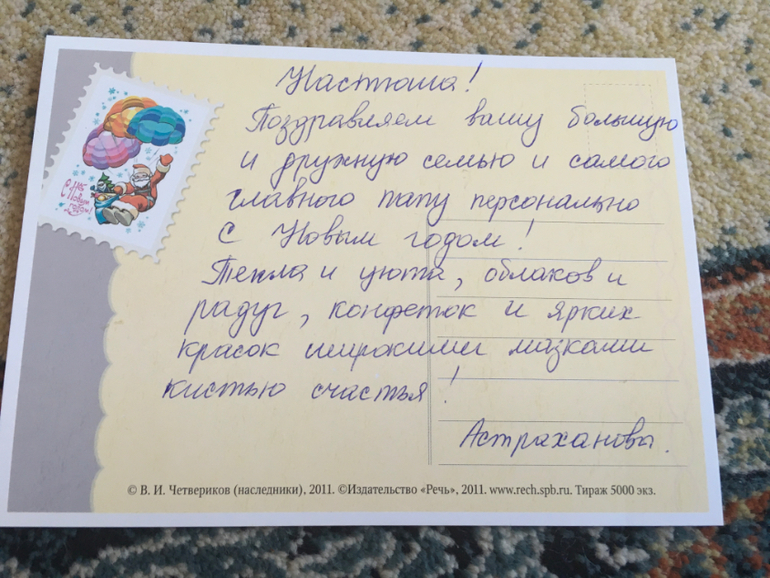 Настюша!
Поздравляем вашу большую
и дружную семью и самого
главного папу персонально
с Новым годом!
Тепла и уюта, облаков и
радуг, конфеток и ярких
красок широкими мазками
кистью счастья!
Астрахановы.
С Новым годом!
© В. И. Четвериков (наследники), 2011. ©Издательство «Речь», 2011. www.rech.spb.ru. Тираж 5000 экз.